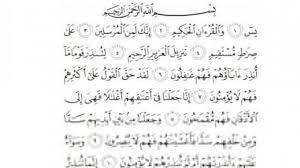 بِسْمِ اللَّهِ الرَّحْمَٰنِ الرَّحِيمِ
يسٓ ١ وَالْقُرْءَانِ الْحَكِيمِ ٢ إِنَّكَ لَمِنَ الْمُرْسَلِينَ ٣ عَلَىٰ
صِرَٰطٍ مُّسْتَقِيمٍ ٤ تَنزِيلَ الْعَزِيزِ الرَّحِيمِ ٥ لِتُنذِرَ قَوْمًا مَّآ
أُنذِرَ ءَابَآؤُهُمْ فَهُمْ غَٰفِلُونَ ٦ لَقَدْ حَقَّ الْقَوْلُ عَلَىٰٓ أَكْثَرِهِمْ
فَهُمْ لَا يُؤْمِنُونَ ٧ إِنَّا جَعَلْنَا فِىٓ أَعْنَٰقِهِمْ أَغْلَٰلًا فَهِىَ إِلَى
الْأَذْقَانِ فَهُم مُّقْمَحُونَ ٨ وَجَعَلْنَا مِنۢ بَيْنِ أَيْدِيهِمْ سَدًّا
وَمِنْ خَلْفِهِمْ سَدًّا فَأَغْشَيْنَٰهُمْ فَهُمْ لَا يُبْصِرُونَ ٩ وَسَوَآءٌ